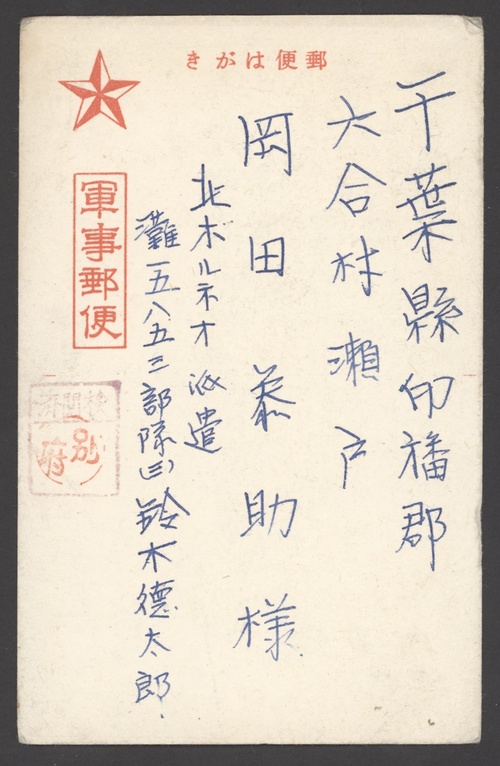 郵便はがき
千葉縣印旛郡
六合村瀬戸
岡田恭助様
北ボルネオ派遣
灘一五八五三部隊(三)鈴木德太郎
軍事郵便
検閲済
別府